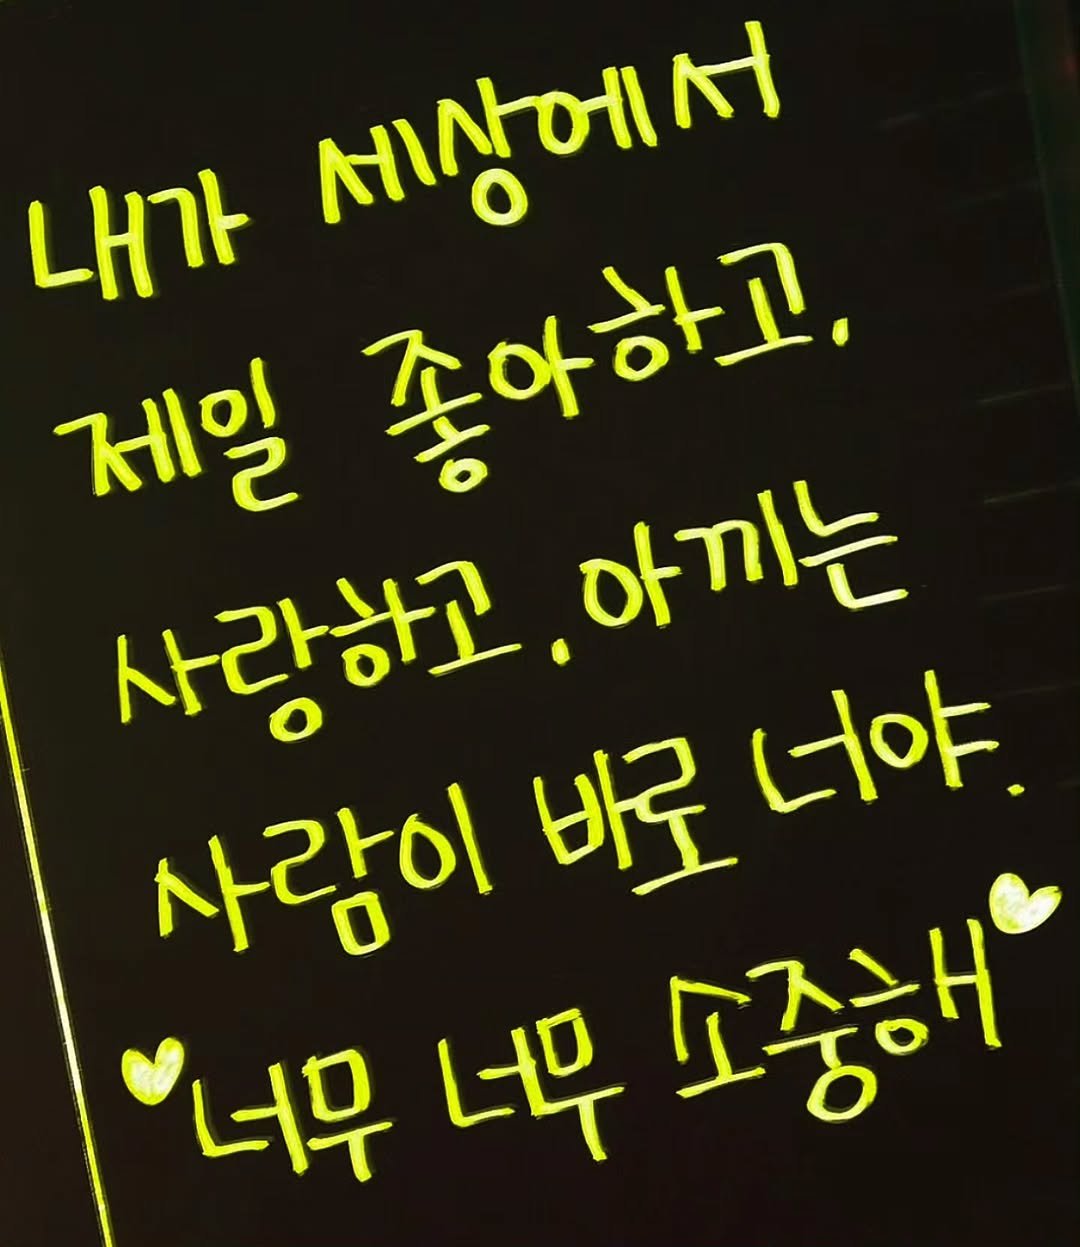 내가 세상에서
제일 좋아하고.
사랑하고. 아끼는
사람이 바로 너야.
너무 너무 소중해